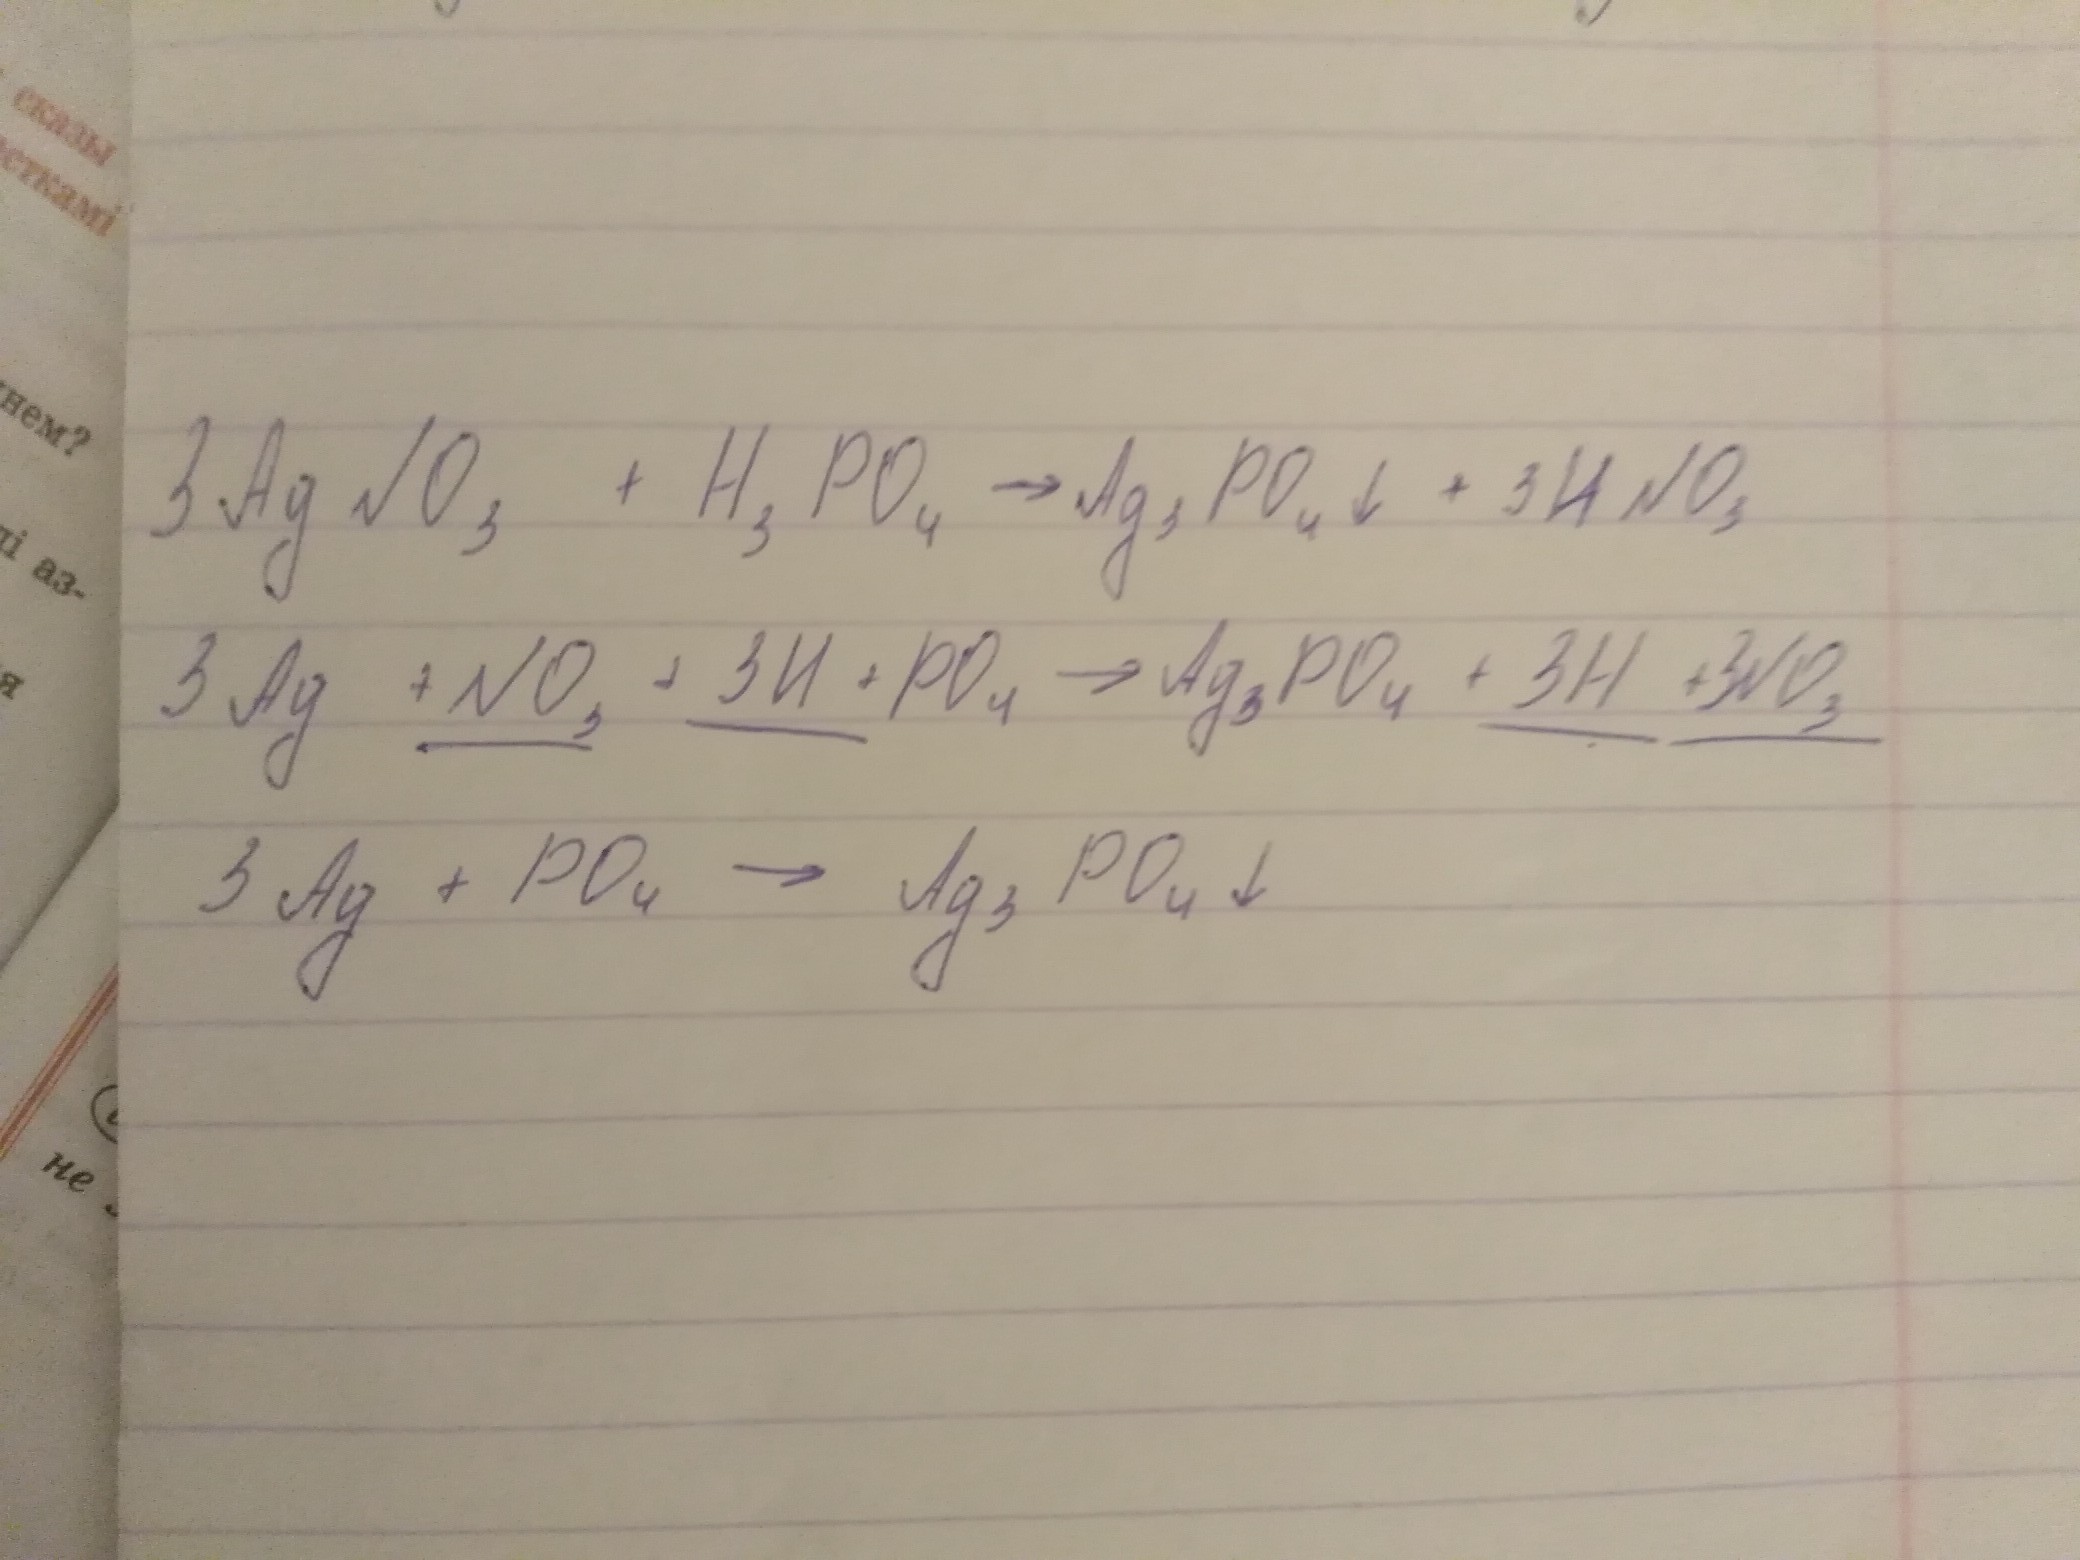 сказы
сткамі
нем?
і аз-
я
не
3AgNO₃ + H₃PO₄ → Ag₃PO₄↓ + 3HNO₃
3Ag + NO₃ + 3H + PO₄ → Ag₃PO₄ + 3H + 3NO₃
3Ag + PO₄ → Ag₃PO₄↓